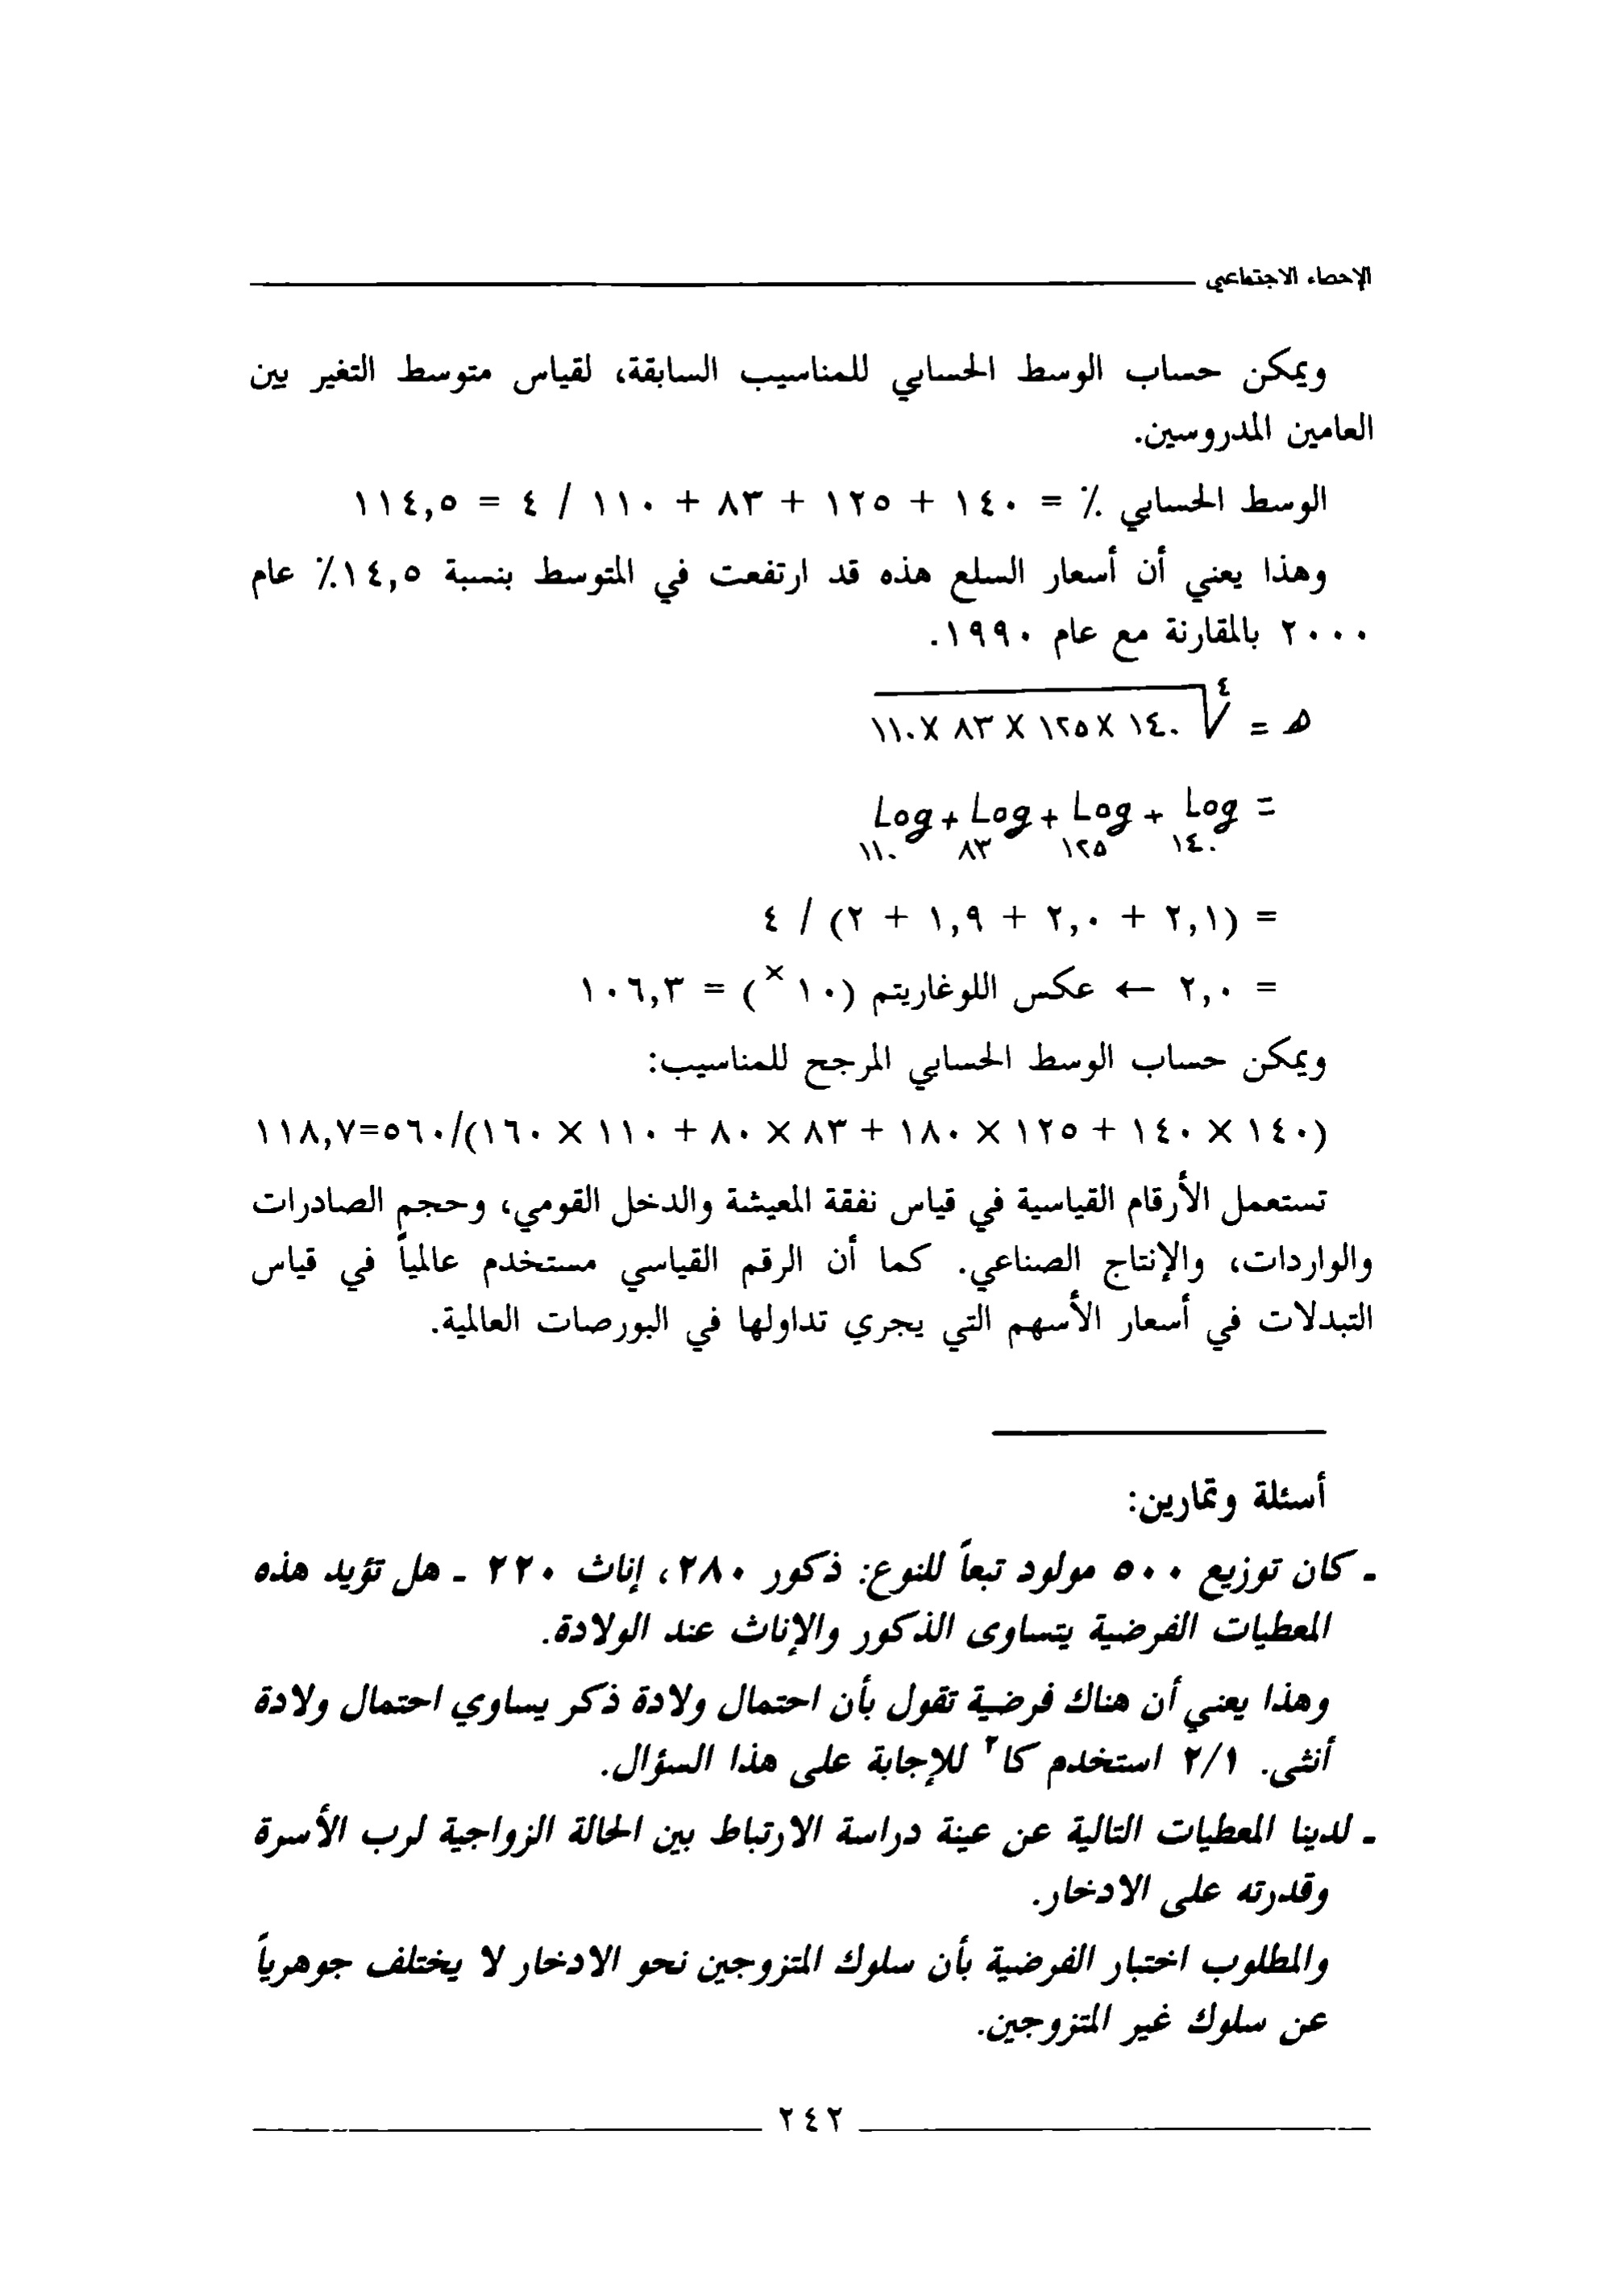 الإحصاء الاجتماعي
ويمكن حساب الوسط الحسابي للمناسيب السابقة، لقياس متوسط التغير بين
العامين المدروسين.
الوسط الحسابي ٪ = ١٤٠ + ١٢٥ + ٨٣ + ١١٠ / ٤ = ١١٤,٥
وهذا يعني أن أسعار السلع هذه قد ارتفعت في المتوسط بنسبة ١٤,٥٪ عام
٢٠٠٠ بالمقارنة مع عام ١٩٩٠.
هـ = ٤√ ١٤٠ X ١٢٥ X ٨٣ X ١١٠
= Log + Log + Log + Log
١٤٠ ١٢٥ ٨٣ ١١٠
= (٢,١ + ٢,٠ + ١,٩ + ٢) / ٤
= ٢,٠ ← عكس اللوغاريتم (١٠ ˣ) = ١٠٦,٣
ويمكن حساب الوسط الحسابي المرجح للمناسيب:
(١٤٠ × ١٤٠ + ١٢٥ × ١٨٠ + ٨٣ × ٨٠ + ١١٠ × ١٦٠)/٥٦٠=١١٨,٧
تستعمل الأرقام القياسية في قياس نفقة المعيشة والدخل القومي، وحجم الصادرات
والواردات، والإنتاج الصناعي. كما أن الرقم القياسي مستخدم عالمياً في قياس
التبدلات في أسعار الأسهم التي يجري تداولها في البورصات العالمية.
أسئلة وتمارين:
- كان توزيع ٥٠٠ مولود تبعاً للنوع: ذكور ٢٨٠، إناث ٢٢٠ - هل تؤيد هذه
المعطيات الفرضية يتساوى الذكور والإناث عند الولادة.
وهذا يعني أن هناك فرضية تقول بأن احتمال ولادة ذكر يساوي احتمال ولادة
أنثى. ٢/١ استخدم كا٢ للإجابة على هذا السؤال.
- لدينا المعطيات التالية عن عينة دراسة الارتباط بين الحالة الزواجية لرب الأسرة
وقدرته على الادخار.
والمطلوب اختبار الفرضية بأن سلوك المتزوجين نحو الادخار لا يختلف جوهرياً
عن سلوك غير المتزوجين.
٢٤٢